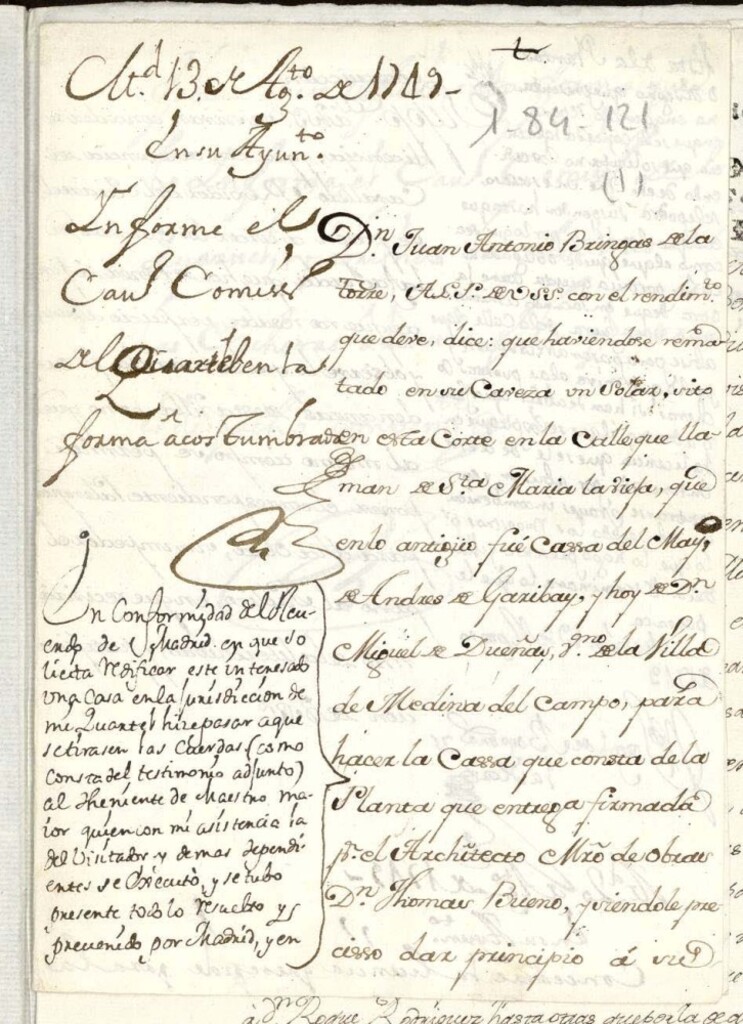 M.d 13. de Ag.to de 1749-
En su Ayun.to
1-84-121
(1)
Informe el
Cav.o Comiss.o
del Quartel en la
forma acostumbrada
D.n Juan Antonio Bringas de la
torre, A.L.P. de V.S. con el rendim.to
que deve, dice: que haviendose rema-
tado en su Caveza un Solar, sito
en esta Corte en la Calle que lla-
man de S.ta Maria la vieja, que
en lo antiguo fué Cassa del May.o
de Andres de Garibay, y hoy de D.n
Miguel de Dueñas, vz.no de la Villa
de Medina del Campo, para
hacer la Cassa que consta de la
Planta que entrega firmada
p.r el Architecto Mro de obras
D.n Thomas Bueno, y siendole pre-
cisso dar principio á su
En Conformidad del Acu-
erdo de Madrid en que so
licita redificar este interesado
una Casa en la jurisdiccion de
mi Quartel hize pasar a que
se tirasen las Cuerdas (como
consta del testimonio adjunto)
al Theniente de Maestro ma-
ior quien con mi asistencia la
del Visitador y demas dependi-
entes se executó, y se tubo
presente todo lo resuelto y
prevenido por Madrid, y en
á D.n Roque Rodriguez hasta otras